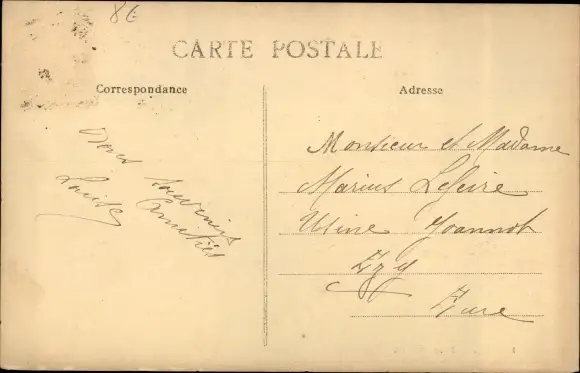 86
CARTE POSTALE
Correspondance
Adresse
souvenirs
Amitiés
Louise
Monsieur et Madame
Marius Lefèvre
Usine Joannot
Ezy
Eure